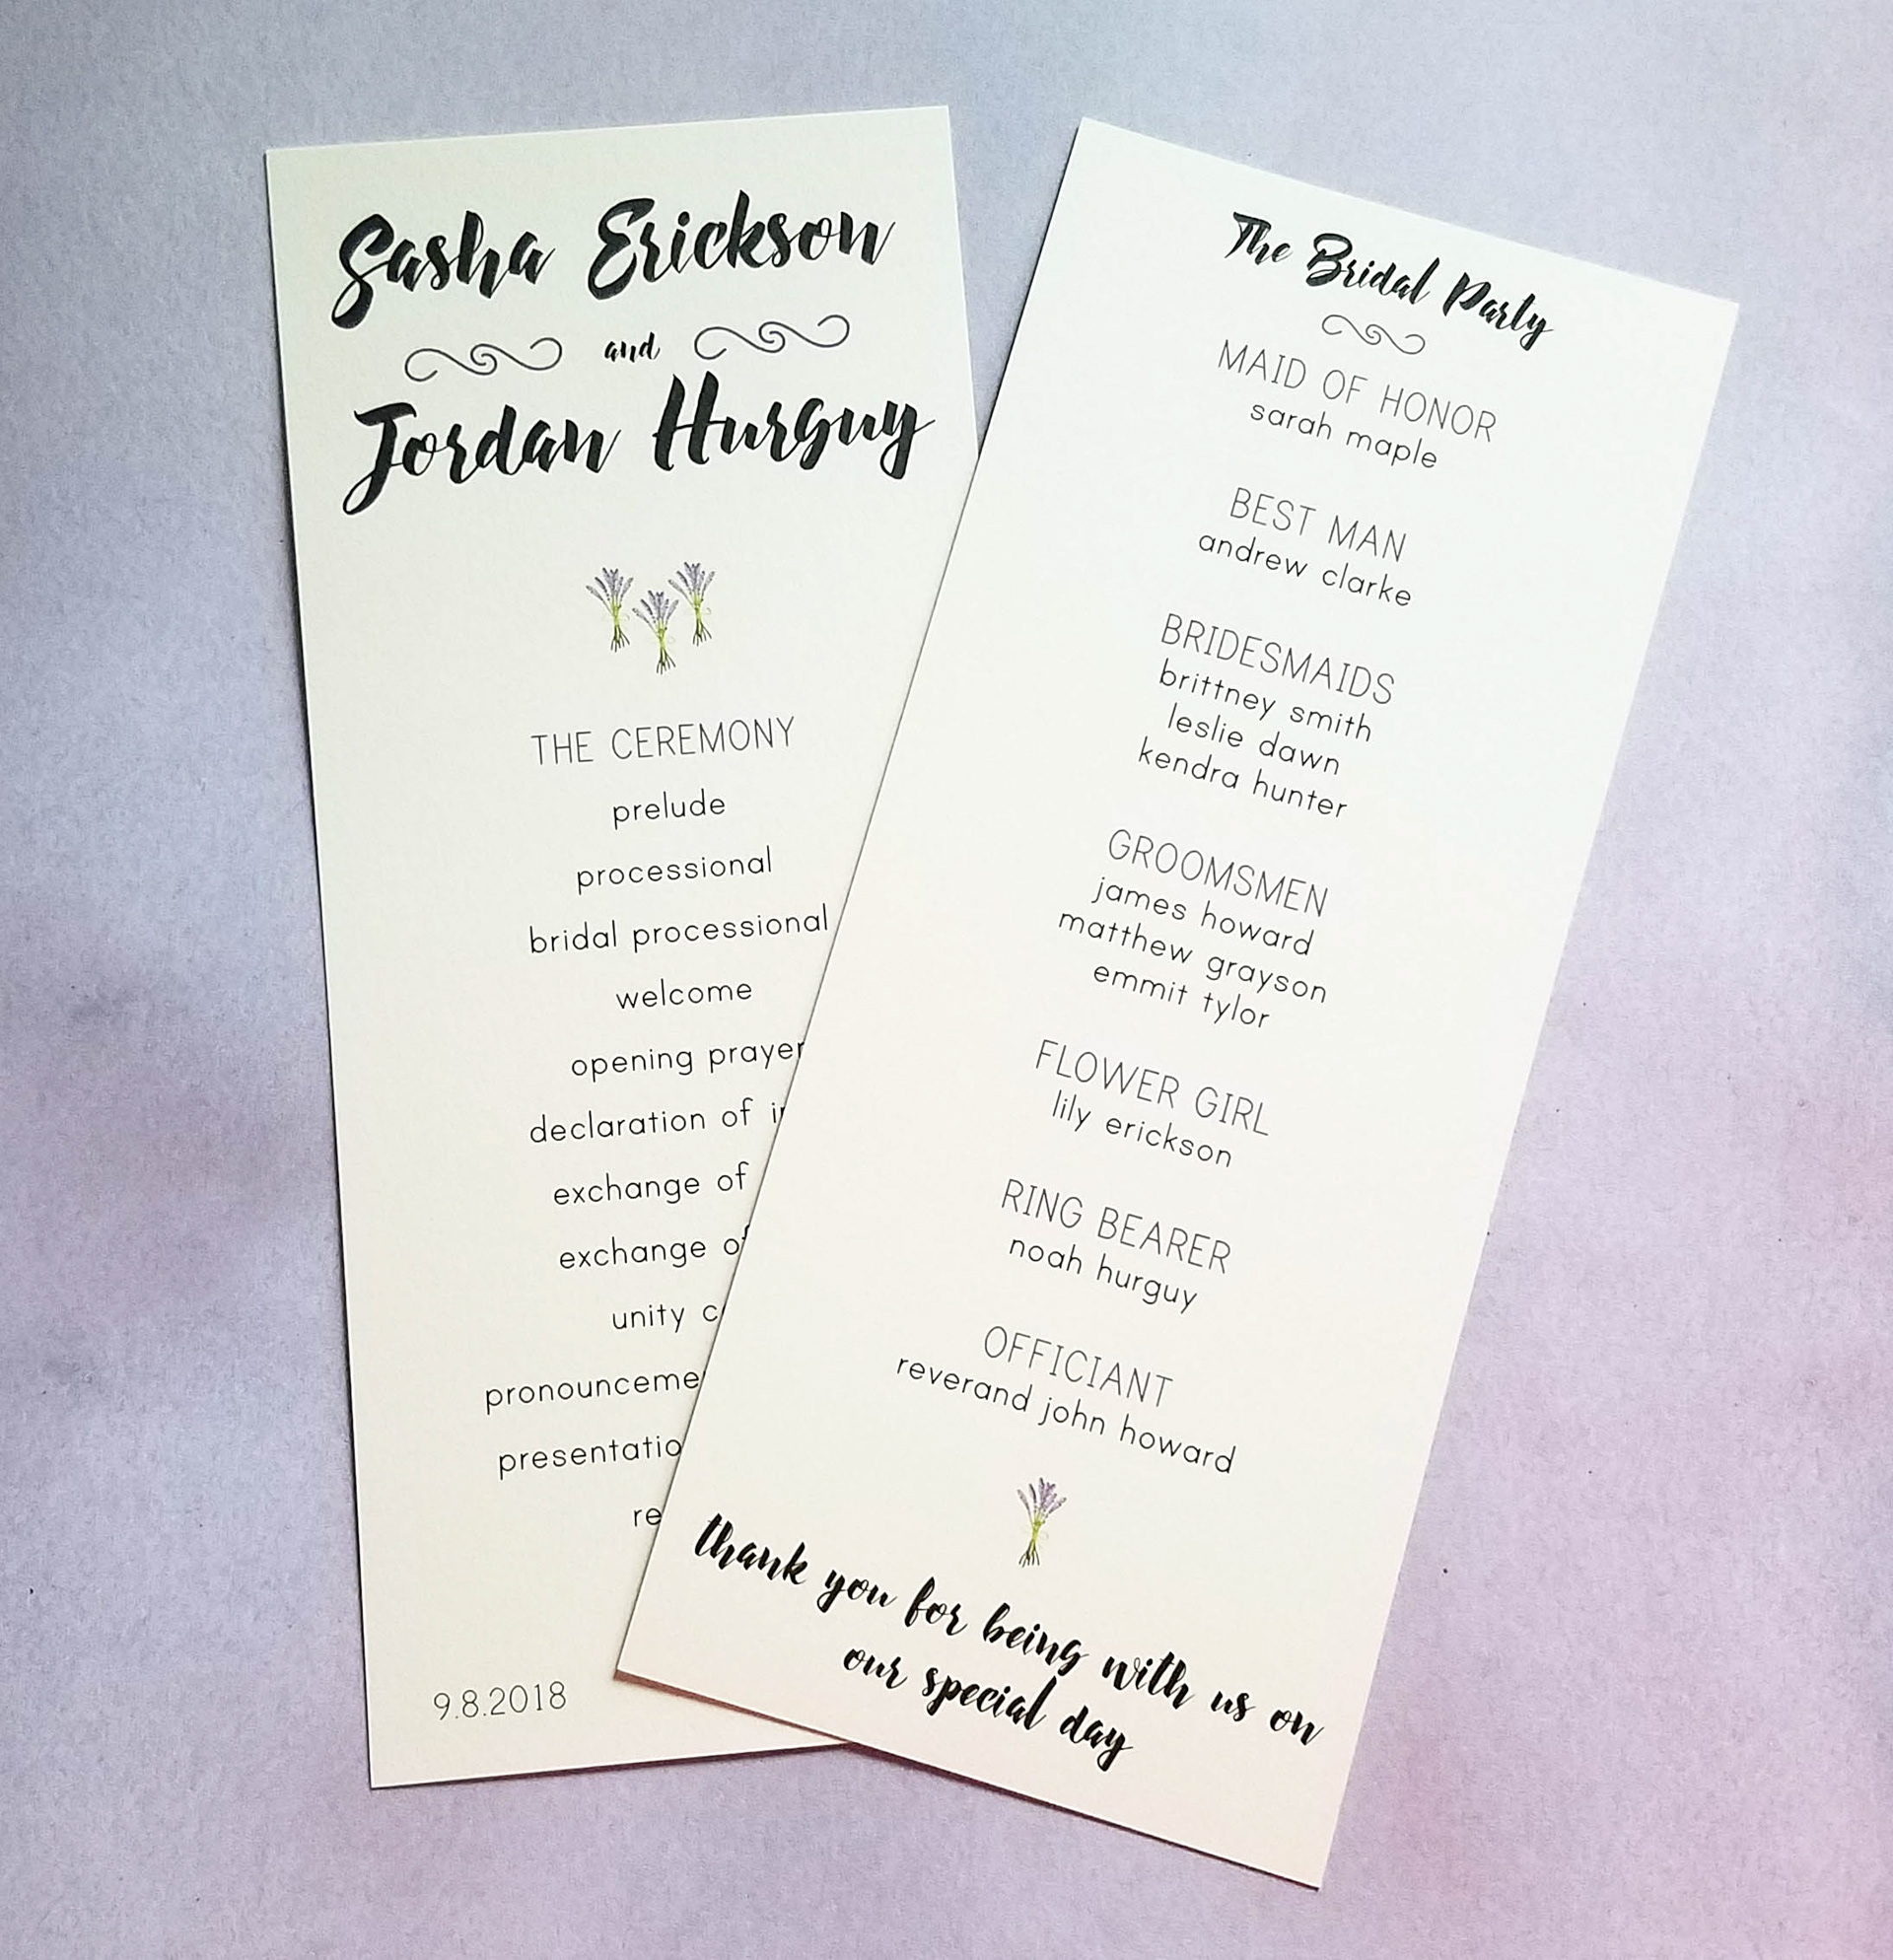 Sasha Erickson
and
Jordan Hurguy
THE CEREMONY
prelude
processional
bridal processional
welcome
opening prayer
declaration of
exchange of
exchange of
unity
9.8.2018
The Bridal Party
MAID OF HONOR
sarah maple
BEST MAN
andrew clarke
BRIDESMAIDS
brittney smith
leslie dawn
kendra hunter
GROOMSMEN
james howard
matthew grayson
emmit tylor
FLOWER GIRL
lily erickson
RING BEARER
noah hurguy
OFFICIANT
reverand john howard
thank you for being with us on
our special day